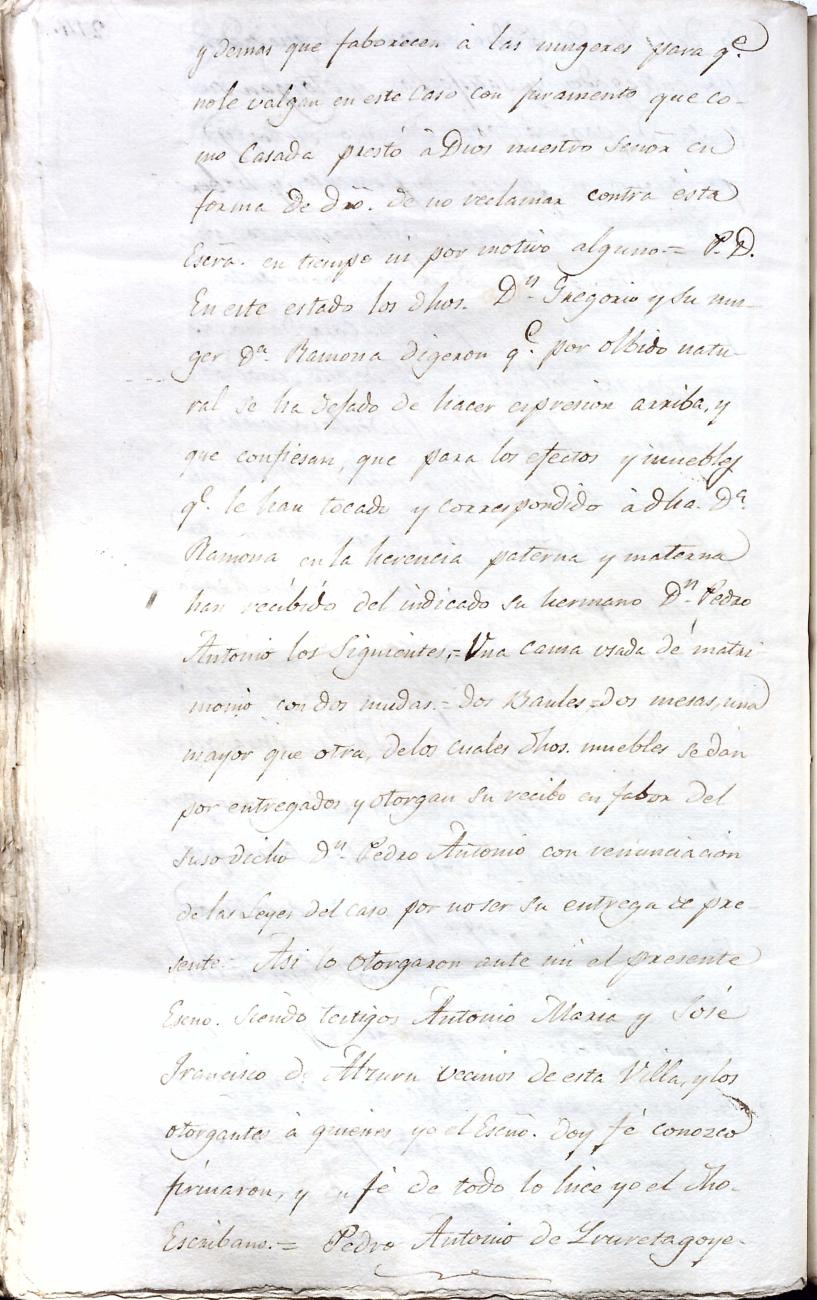 y demas que faborecen à las mugeres para q.e
nole valgan en este caso con juramento que co-
mo Casada prestó à Dios nuestro Señor en
forma de dro. de no reclamar contra ésta
Escra. en tiempo ni por motivo alguno.= P. D.
En este estado los dhos. D.n Gregorio y su mu-
ger D.a Ramona digeron q.e por olbido natu-
ral se ha dejado de hacer expresion arriba, y
que confiesan, que para los efectos y muebles
q.e le han tocado y correspondido à dha. D.a
Ramona en la herencia paterna y materna
han recibido del indicado su hermano D.n Pedro
Antonio los Siguientes,= Una cama usada de matri
monio con dos mudas.= dos Baules = dos mesas, una
mayor que otra, delos cuales dhos. muebles se dan
por entregados y otorgan su recibo en fabor del
suso dicho D.n Pedro Antonio con renunciacion
de las Leyes del caso por no ser su entrega de pre-
sente. Asi lo otorgaron ante mi el presente
Escno. Siendo testigos Antonio Maria y José
Francisco de Alzuru vecinos de esta Villa, y los
otorgantes à quienes yo el Escnõ. doy fé conozco
firmaron, y en fé de todo lo hice yo el dho.
Escribano.= Pedro Antonio de Yruretagoye-